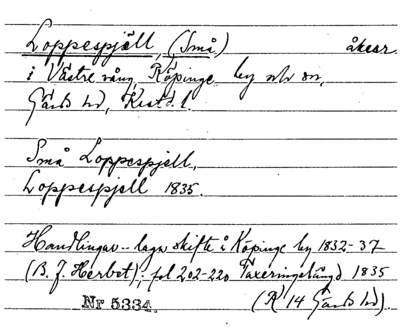 Loppespjäll, (Små) åkrar
i Västre vång, Köpinge by och sn,
Gärds hd, Krist. l.
Små Loppespjell,
Loppespjell 1835.
Handlingar - laga skifte å Köpinge by 1832-37
(B. J. Herbst); fol 202-220 Taxeringslängd 1835
Nr 5334. (K 14 Gärds hd).